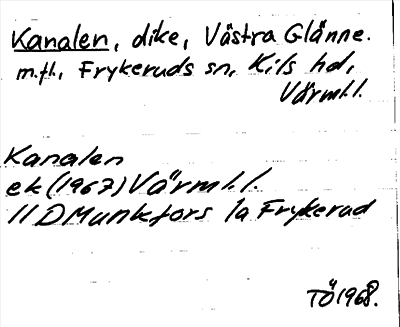 Kanalen, dike, Västra Glänne.
m.fl., Frykeruds sn, Kils hd,
Värml.
Kanalen
ek (1967) Värml.
11 D Munkfors 1a Frykerud
TÖ 1968.